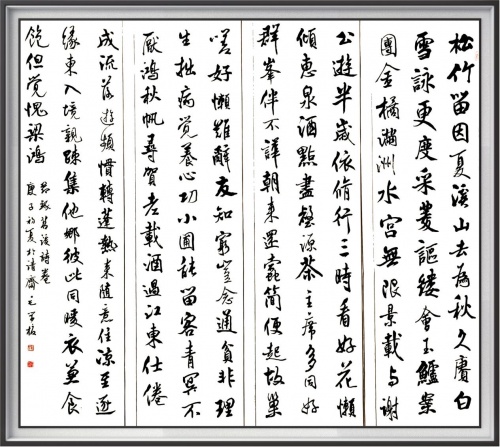 松竹留因夏溪山去為秋久賡白
雪詠更度采菱謳縷會玉鱸案
團金橘滿洲水宮無限景載与謝
公遊半歲依脩竹三時看好花懶
傾惠泉酒點盡壑源茶主席多同好
群峯伴不譁朝來還蠹簡便起故巢
嗟好懶難辭友知窮豈念通貧非理
生拙病覺養心功小圃能留客青冥不
厭鴻秋帆尋賀老載酒過江東仕倦
成流落遊頻慣轉蓬熱來隨意住涼至逐
緣東入境親疎集他鄉彼此同暖衣兼食
飽但覺愧梁鴻
苕溪詩卷
庚子初夏於清齋